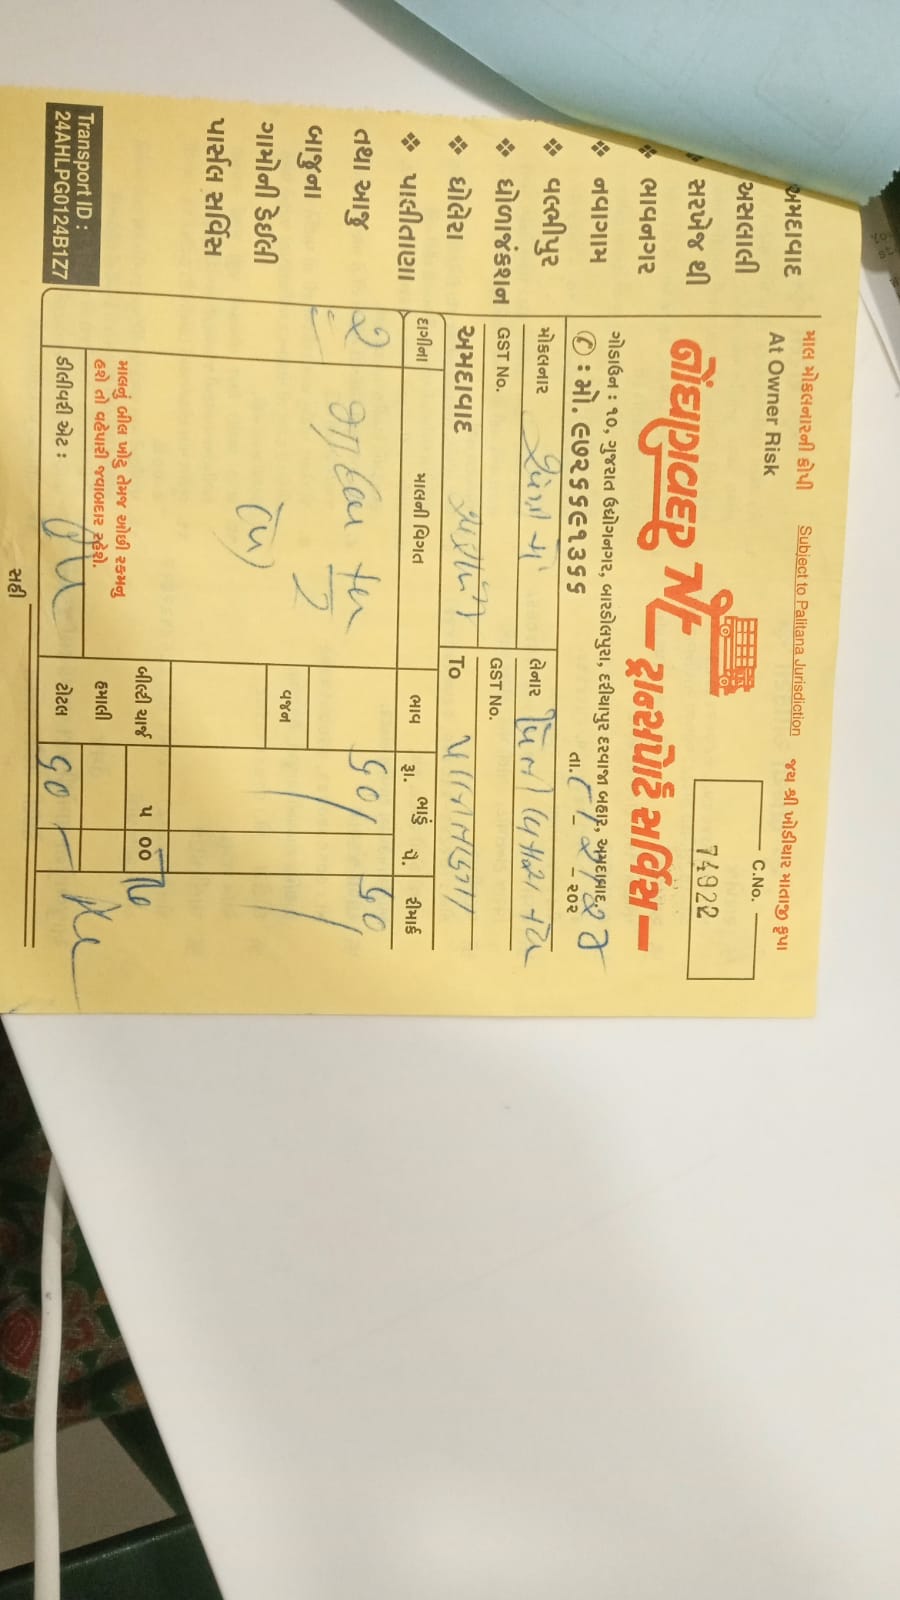 અમદાવાદ
અસલાલી
સરખેજ થી
❖ ભાવનગર
❖ નવાગામ
❖ વલ્ભીપુર
❖ ધોળાજંકશન
❖ ધોલેરા
❖ પાલીતાણા
તથા આજુ
બાજુના
ગામોની ડેઈલી
પાર્સલ સર્વિસ
Transport ID :
24AHLPG0124B1Z7
માલ મોકલનારની કોપી Subject to Palitana Jurisdiction જય શ્રી ખોડીયાર માતાજી કૃપા
At Owner Risk
C.No.
74922
નોંઘણવદર NT ટ્રાન્સપોર્ટ સર્વિસ
ગોડાઉન : ૧૦, ગુજરાત ઉદ્યોગનગર, બારડોલપુરા, દરીયાપુર દરવાજા બહાર, અમદાવાદ.
: મો. ૯૭૨૬૬૯૧૩૬૬ તા. - - ૨૦૨
મોકલનાર લેનાર
GST No. GST No.
અમદાવાદ To પાલીતાણા
દાગીના માલની વિગત ભાવ ભાડું રૂા. પૈ. રીમાર્ક
૨ ૬૦ ૬૦
2
વજન
બીલ્ટી ચાર્જ ૫ ૦૦
માલનું બીલ ખોટુ તેમજ ઓછી રકમનુ
હશે તો વહેપારી જવાબદાર રહેશે.
હમાલી
ડીલીવરી એટ : ટોટલ ૬૦ -
સહી